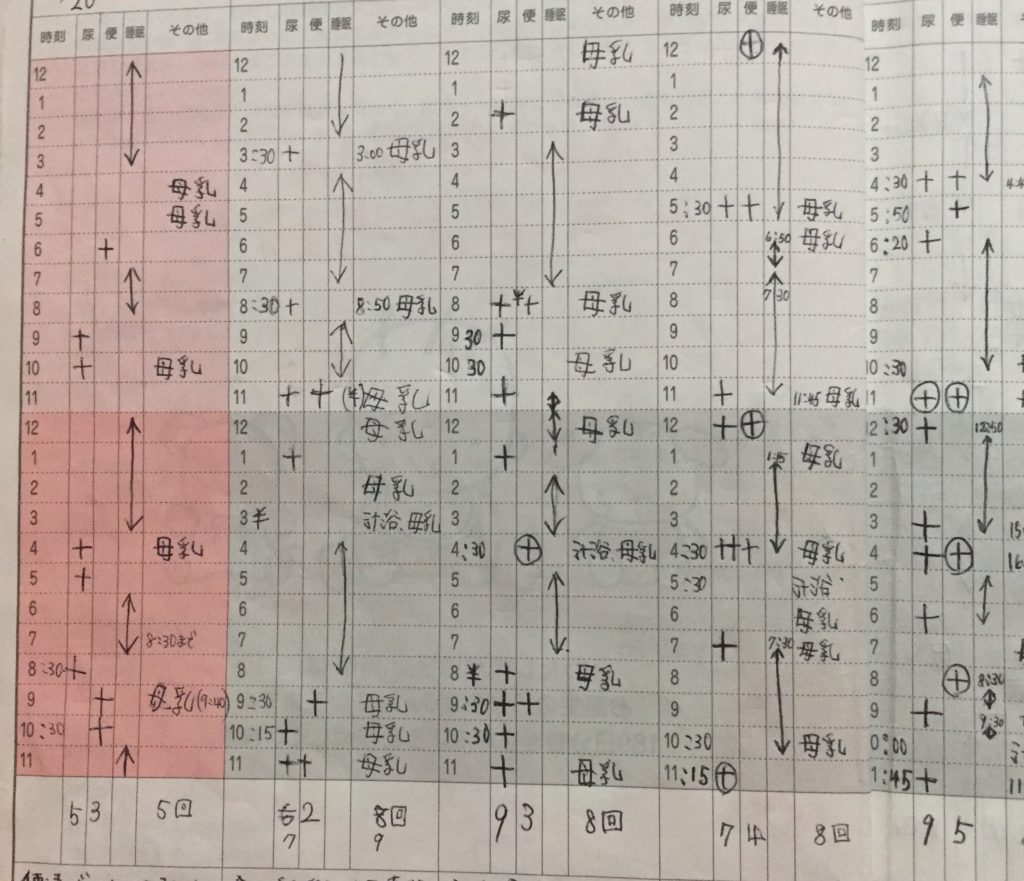 20
時刻 尿 便 睡眠 その他 時刻 尿 便 睡眠 その他 時刻 尿 便 睡眠 その他 時刻 尿 便 睡眠 その他 時刻 尿 便 睡眠
12 12 12 母乳 12 ⊕ 12
1 1 1 1 1
2 2 2 + 母乳 2 2
3 3:30 + 3:00 母乳 3 3 3
4 母乳 4 4 4 4:30 + +
5 母乳 5 5 5:30 + + 母乳 5:50 +
6 + 6 6 6 6:50 母乳 6:20 +
7 7 7 7 7
8 8:30 + 8:50 母乳 8 + ¥ + 母乳 8 7:30 8
9 + 9 9 30 + 9 9
10 + 母乳 10 10 30 母乳 10 10:30
11 11 + + (¥)母乳 11 + 11 + 11:45 母乳 11 ⊕ ⊕
12 12 母乳 12 母乳 12 + ⊕ 12:30 + 12:50
1 1 + 1 + 1 母乳 1
2 2 母乳 2 2 2
3 3 ¥ 沐浴、母乳 3 3 3 +
4 + 母乳 4 4:30 ⊕ 沐浴、母乳 4:30 ++ + 母乳 4 + ⊕
5 + 5 5 5:30 沐浴 5
6 6 6 母乳 6 +
7 8:30まで 7 7 7 + 7:30 母乳 7
8:30 + 8 8 ¥ + 母乳 8 8 ⊕ 8:30
9 + 母乳(9:40) 9:30 + 母乳 9:30 + + 9 9 + 9:30
10:30 + 10:15 + 母乳 10:30 + 10:30 母乳 0:00
11 11 ++ 母乳 11 + 母乳 11:15 ⊕ 1:45 + 11
5 3 5回 2 8回 9 3 8回 7 4 8回 9 5
7 9